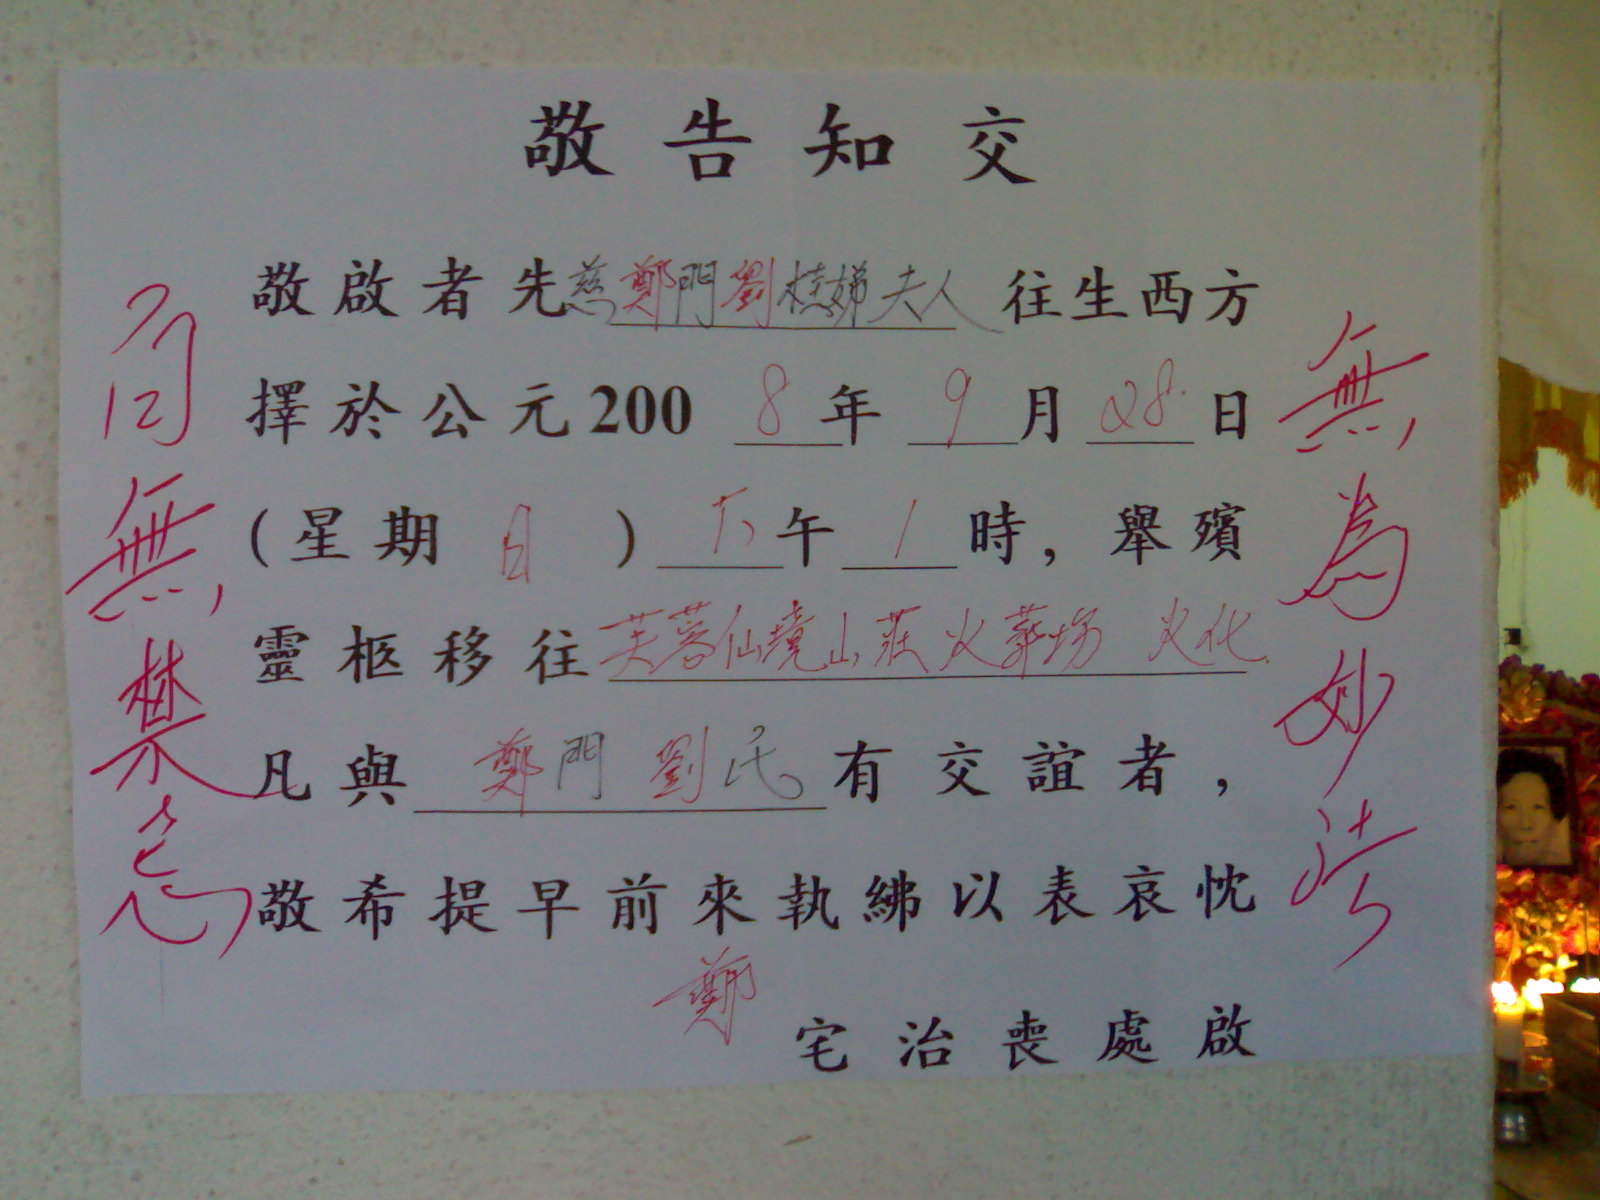 敬告知交
敬啟者先慈鄭門劉桂娣夫人往生西方
擇於公元2008年9月28日
(星期日)下午1時，舉殯
靈柩移往芙蓉仙境山莊火葬場 火化
凡與鄭門劉氏有交誼者，
敬希提早前來執紼以表哀忱
鄭宅治喪處啟
無為妙法
百無禁忌